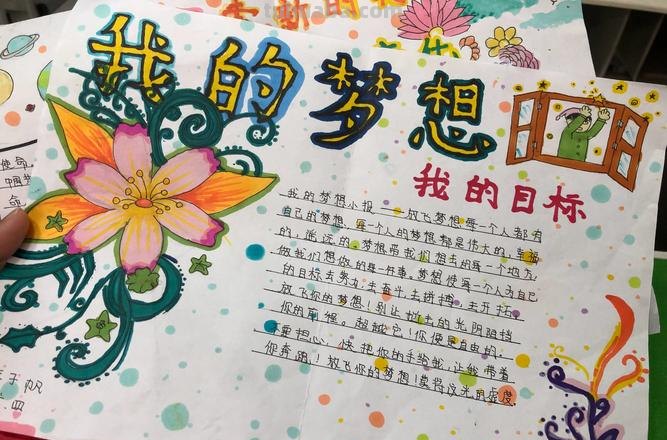 我的梦想
我的目标
我的梦想小报——放飞梦想每一个人都有
自己的梦想,每一个人的梦想都是伟大的,幸福
的,泡泛的。梦想带我们想去的每一个地方
做我们想做的每一件事。梦想使每一个人为自己
的目标去努力,去奋斗去拼搏,去开拓
放飞你的梦想!别让地上的光阴阻挡
你的 超越它!你便是自由的。
要担心,快把你的手给我,让我带着
你奔跑!放飞你的梦想!
使命
中国
命